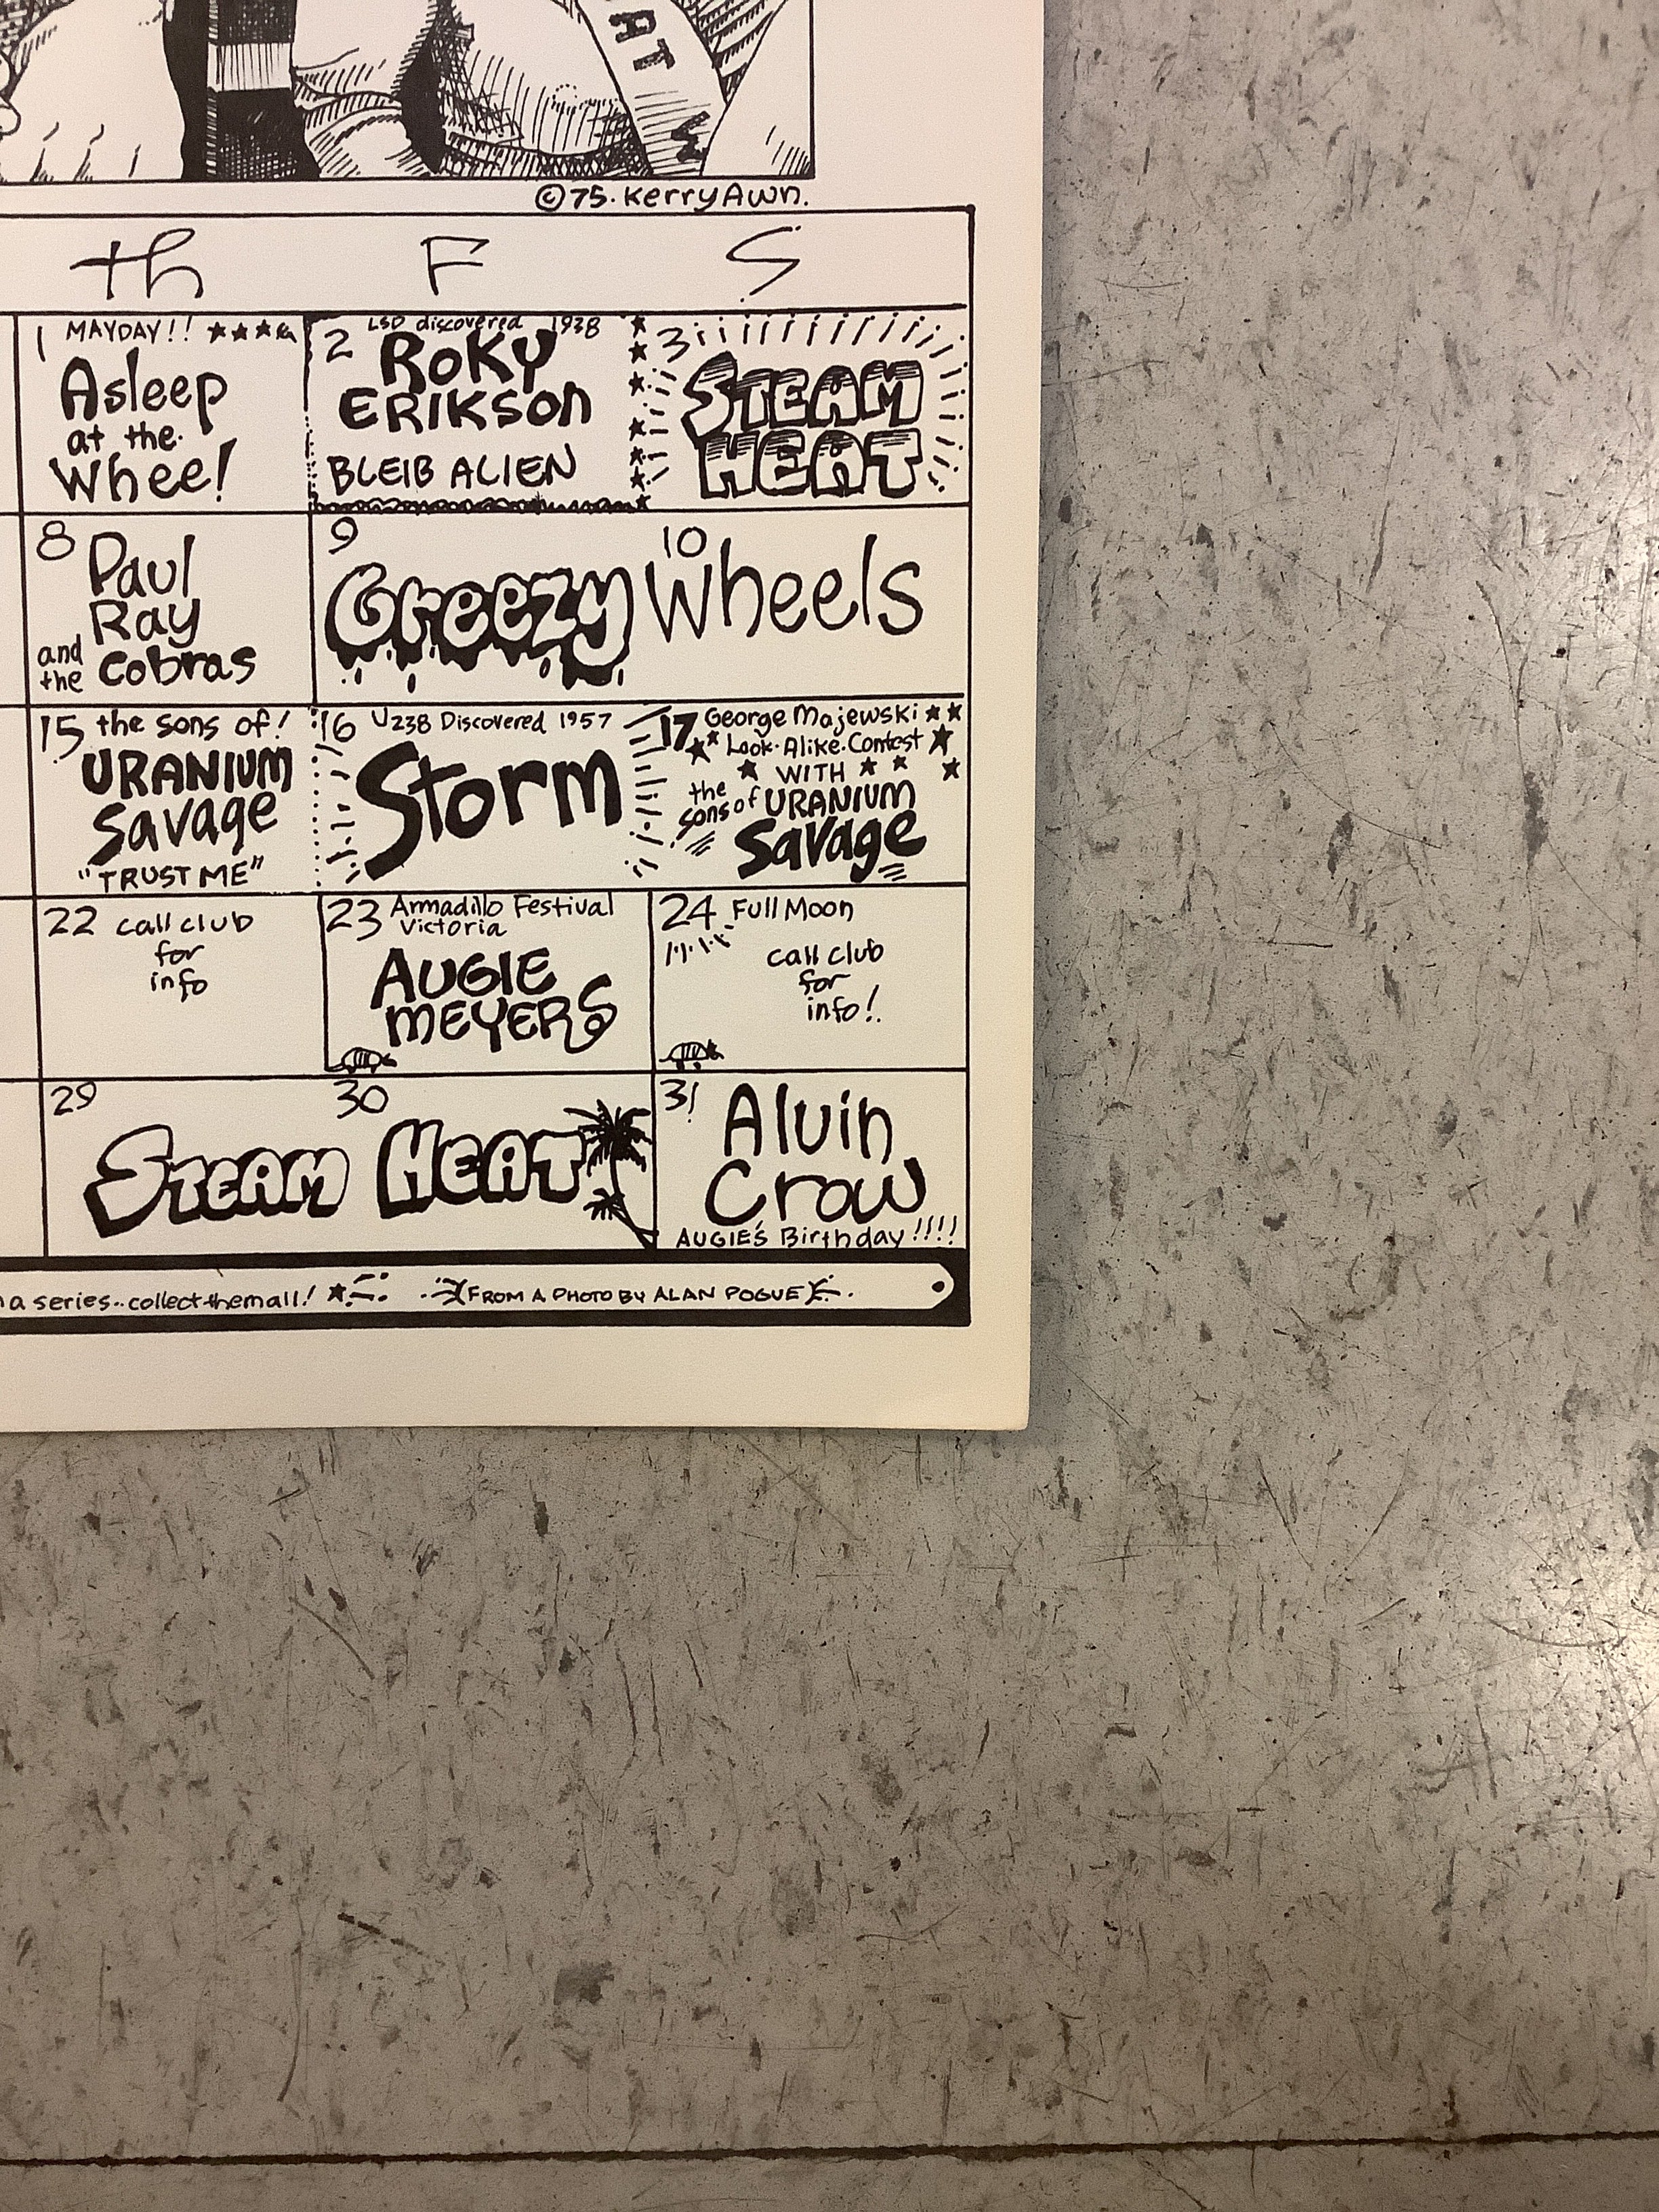 AT
©75. Kerry Awn.
th F S
1 MAYDAY!!
Asleep
at the
Wheel
2 LSD discovered 1938
ROKY
ERIKSON
BLEIB ALIEN
3
STEAM
HEAT
8 Paul
Ray
and the Cobras
9 10
Greezy Wheels
15 the sons of!
URANIUM
Savage
"TRUST ME"
16 U238 Discovered 1957
Storm
17 George Majewski
Look-Alike-Contest
WITH
the sons of URANIUM
Savage
22 call club
for
info
23 Armadillo Festival
Victoria
AUGIE
MEYERS
24 Full Moon
call club
for
info!
29 30
STEAM HEAT
31 Alvin
Crow
AUGIE'S Birthday!!!!
a series..collect them all! FROM A PHOTO BY ALAN POGUE